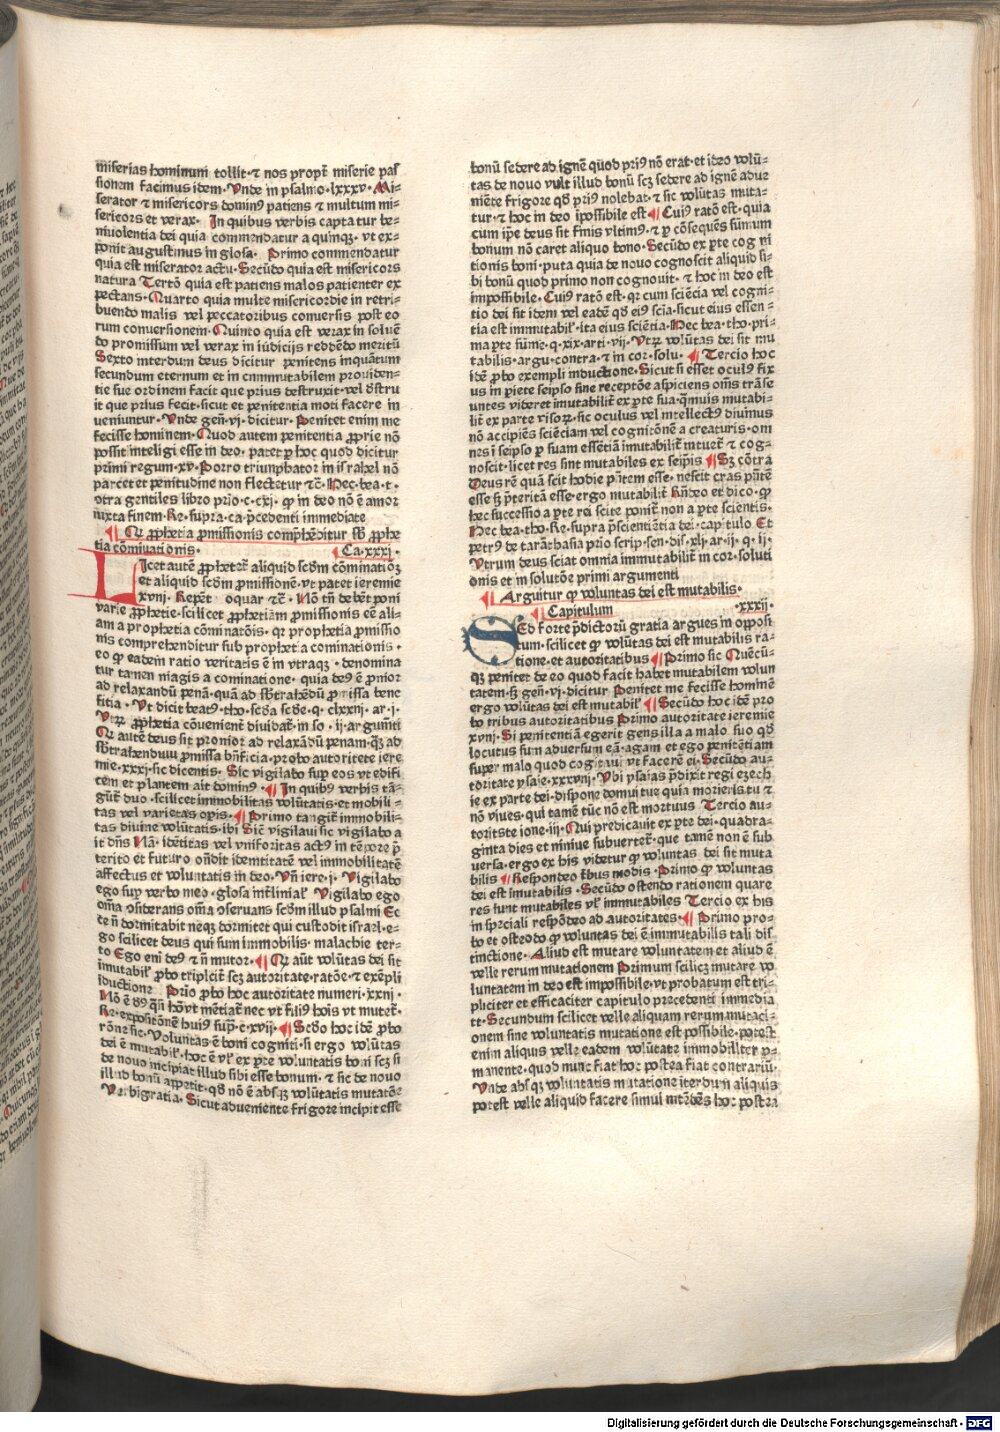 miserias hominum tollit·⁊ nos propt̄ miserie pas
sionem facimus idem· Vnde in psalmo·lxxxv·Mi-
serator ⁊ misericors dominꝰ patiens ⁊ multum mi-
sericors et verax· In quibus verbis captatur be-
niuolentia dei quia commendatur a quinqꝫ· vt ex-
ponit augustinus in glosa· Primo commendatur
quia est miserator actu· Secūdo quia est misericors
natura Tertō quia est patiens malos patienter ex
pectans· Quarto quia multe misericordie in retri-
buendo malis vel peccatoribus conuersis post eo
rum conuersionem· Quinto quia est verax in soluē
do promissum vel verax in iudicijs reddēdo meritū
Sexto interdum deus dicitur penitens inquātum
secundum eternum et incommutabilem prouiden-
tie sue ordinem facit que prius destruxit·vel dstru
it que prius fecit·sicut et penitentia moti facere in
ueniuntur· Vnde gen̄·vj·dicitur· Penitet enim me
fecisse hominem· Quod autem penitentia ꝓprie nō
possit inteligi esse in deo· patet ꝑ hoc quod dicitur
primi regum·xv· Porro triumphator in israhel nō
parcet et penitudine non flectetur ⁊c̄· Hec·bea·t·
ↄtra gentiles libro prio·c·cxj· ꝙ in deo nō ē amor
iuxta finem· Re·supra·ca·p̄cedenti immediate
¶ Qꝛ ꝓphetia ꝓmissionis compꝛehēditur sb̄ ꝓphe
tia cōminationis· ¶ Ca·xxxj·
LIcet autē ꝓphetet̄ aliquid scd̄m cōminatiōꝫ
et aliquid scd̄m ꝓmissionē·vt patet ieremie
xvnj· Repēt oquar ⁊c̄· Nō tn̄ debēt poni
varie ꝓphetie·scilicet ꝓphetiam ꝓmissionis eē ali-
am a prophetia cōminatōis· qꝛ prophetia ꝓmissio
nis comprehenditur sub prophetia cominationis·
eo ꝙ eadem ratio veritatis ē in vtraqꝫ· denomina
tur tamen magis a cominatione· quia deꝰ ē ꝓnior
ad relaxandū penā·quā ad sb̄trahēdū ꝓmissa bene
fitia· Vt dicit beatꝰ·tho·scd̄a scd̄e·q·clxxnj·ar·j·
Vtꝝ ꝓphetia cōuenient̄ diuidat̄·in so·ij·argum̄ti
Qꝛ autē deus sit pronior ad relaxādū penam·qꝫ ad
sb̄trahenduu ꝓmissa bn̄ficia·probo autoritete iere
mie·xxxj·sic dicentis· Sic vigilabo sup eos vt edifi
cem et plantem ait dominꝰ·¶ In quibus verbis tā-
gūt̄ duo·scilicet immobilitas volūtatis·et mobili-
tas vel varietas opis·¶ Primo tangit̄ immobili-
tas diuine volūtatis·ibi Sic vigilaui sic vigilabo a
it dn̄s Nā·idētitas vel vniforitas actꝰ in tēpore p̄
terito et futuro on̄dit idemtitatē vel immobilitatē
affectus et voluntatis in deo· Vn̄ iere·j· Vigilabo
ego sup verbo meo·glosa int̄linial̄· Vigilabo ego
om̄a ↄsiderans om̄a ↄseruans scd̄m illud psalmi Ec
ce n̄ dormitabit neqꝫ dormiet qui custodit israel·e-
go scilicet deus qui sum immobilis·malachie ter-
to Ego eni deꝰ ⁊ n̄ mutor·¶ Qꝛ aūt volūtas dei sit
immutabil̄ ꝓbo triplicit̄ scꝫ autoritate·ratōe·⁊ exēpli
iductione Prio ꝓbo hoc autoritate numeri·xxnj·
Nō ē dꝰ qn̄ hōvt mētiat̄ nec vt filiꝰ hōis vt mutet̄·
Re·expositionē huiꝰ sup̄·c·xvij·¶ Scd̄o hoc idē ꝓbo
rōne sic· Voluntas ē boni cogniti·si ergo volūtas
dei ē mutabil̄·hoc ē vl̄ ex pꝛte voluntatis boni scꝫ si
de nouo incipiat illud sibi esse bonum·⁊ sic de nouo
illud bonū appetit·qd̄ nō ē absqꝫ volūtatis mutatōe
Verbigratia· Sicut adueniente frigore incipit esse
bonū sedere ad ignē quod priꝰ nō erat·et ideo volū-
tas de nouo vult illud bonū scꝫ sedere ad ignē adue
niēte frigore qd̄ priꝰ nolebat·⁊ sic volūtas muta-
tur·⁊ hoc in deo ipossibile est·¶ Cuiꝰ ratō est·quia
cum ipe deus sit finis vltimꝰ·⁊ ꝑ cōsequēs summum
bonum nō caret aliquo bono·Secūdo ex pꝛte cogni
tionis boni·puta quia de nouo cognoscit aliquid si-
bi bonū quod primo non cognouit·⁊ hoc in deo est
impossibile·Cuiꝰ ratō est·qꝛ cum sciēcia vel cogni-
tio dei sit idem vel eadē qd̄ eiꝰ scia·sicut eius essen-
tia est immutabil̄·ita eius sciētia·Hec bea·tho·pri-
ma pꝛte sūme·q·xix·arti·vij·Vtꝝ volūtas dei sit mu
tabilis·argu·contra·⁊ in cor·solu·¶ Tercio hoc
idē ꝓbo exempli inductione·Sicut si esset oculꝰ fix
us in piete seipso sine receptōe aspiciens om̄s trāse
untes videret imutabilit̄ ex pꝛte sua·qmuis mutabi-
lit̄ ex parte visoꝝ·sic oculus vel intellectꝰ diuinus
nō accipiēs sciēciam vel cognitōnē a creaturis·om
nes i seipso ꝑ suam essētiā imutabilit̄ intuet̄ ⁊ cog-
noscit·licet res sint mutabiles ex seipīs ¶ Sꝫ cōtra
Deus rē quā scit hodie pn̄tem esse·nescit cras pn̄tē
esse sꝫ p̄teritā esse·ergo mutabilit̄ Rn̄deo et dico·ꝙ
hec successio a pꝛte rei scite ponit̄ non a pꝛte scientis·
Hec bea·tho·Re·supra p̄scientiētia dei·capitulo Et
petrꝰ de tarāthasia prio scrip·sen·dis·xlj·ar·ij·q·ij·
Vtrum deus sciat omnia immutabilit̄ in cor·soluti
onis et in solutōe primi argumenti
¶ Arguitur ꝙ voluntas dei est mutabilis·
¶ Capitulum ·xxxij·
SEd forte p̄dictorū gratia argues in opposi
tum·scilicet ꝙ volūtas dei est mutabilis ra-
tione·et autoritatibus ¶ Primo sic Quēcū-
qꝫ penitet de eo quod facit habet mutabilem volun
tatem·sꝫ gen̄·vj·dicitur Penitet me fecisse hominē
ergo volūtas dei est mutabil̄ ¶ Secūdo hoc idē pro
bo tribus autoritatibus Primo autoritate ieremie
xvnj·Si penitentiā egerit gens illa a malo suo qd̄
locutus sum aduersum eā·agam et ego penitētiam
super malo quod cogitaui vt facerē ei·Secūdo au-
toritate ysaie·xxxvnj·Vbi ysaias p̄dixit regi ezech
ie ex parte dei·dispone domui tue quia morieris tu ⁊
nō viues·qui tamē tūc nō est mortuus Tercio au-
toritste ione·iij·Qui predicauit ex pꝛte dei·quadra-
ginta dies et niniue subuertet̄·que tamē non ē sub
uersa·ergo ex his videtur ꝙ voluntas dei sit muta
bilis ¶ Respondeo tbus modis·Primo ꝙ voluntas
dei est imutabilis·Secūdo ostendo rationem quare
res sunt mutabiles vl̄ immutabiles Tercio ex his
in speciali respōdeo ad autoritates·¶ Primo pro-
bo et ostendo ꝙ voluntas dei ē immutabilis tali dis
tinctione·Aliud est mutare voluntatem et aliud ē
velle rerum mutationem Primum scilicꝫ mutare vo
luntatem in deo est impossibile·vt probatum est tri-
pliciter et efficaciter capitulo precedenti immedia
te·Secundum scilicet velle aliquam rerum mutaci-
onem sine voluntatis mutatione est possibile·potest
enim aliquis velle eadem volūtate immobiliter p-
manente·quod nunc fiat hoc postea fiat contrariū·
Vnde absqꝫ voluntatis mutatione iterdum aliquis
potest velle aliquid facere simul intēdēs hoc postea
Digitalisierung gefördert durch die Deutsche Forschungsgemeinschaft - DFG